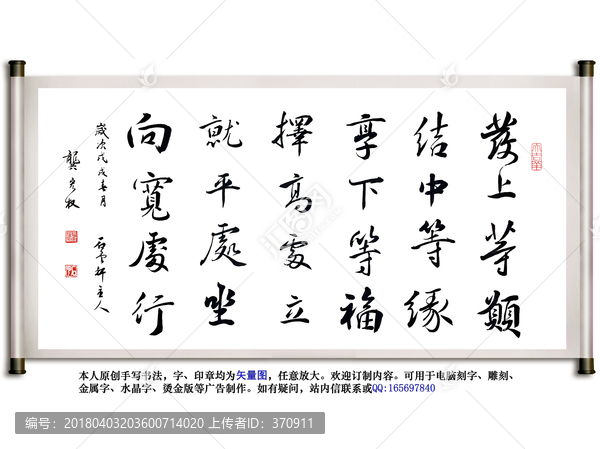 發上等願
结中等缘
享下等福
擇高處立
就平處坐
向寬處行
歲次戊戌春月
石雲軒主人
龔宏牧
本人原创手写书法，字、印章均为矢量图，任意放大。欢迎订制内容。可用于电脑刻字、雕刻、
金属字、水晶字、烫金版等广告制作。如有疑问，站内信联系或QQ:165697840
编号：20180403203600714020 上传者ID：370911